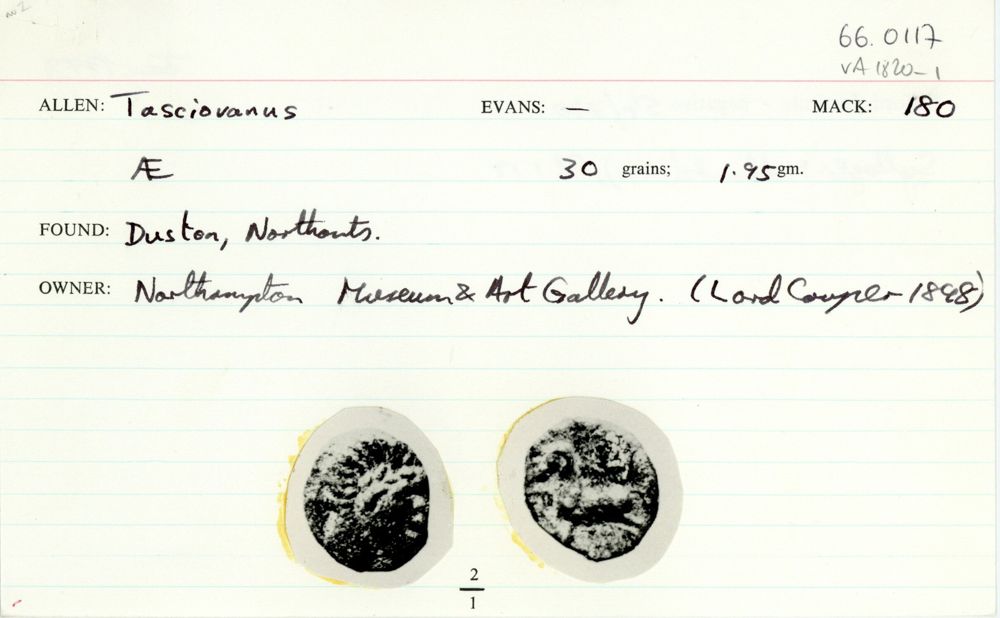 66.0117
VA 1820-1
ALLEN: Tasciovanus EVANS: — MACK: 180
Æ 30 grains; 1.95 gm.
FOUND: Duston, Northants.
OWNER: Northampton Museum & Art Gallery. (Lord Cowper 1898)
2
1